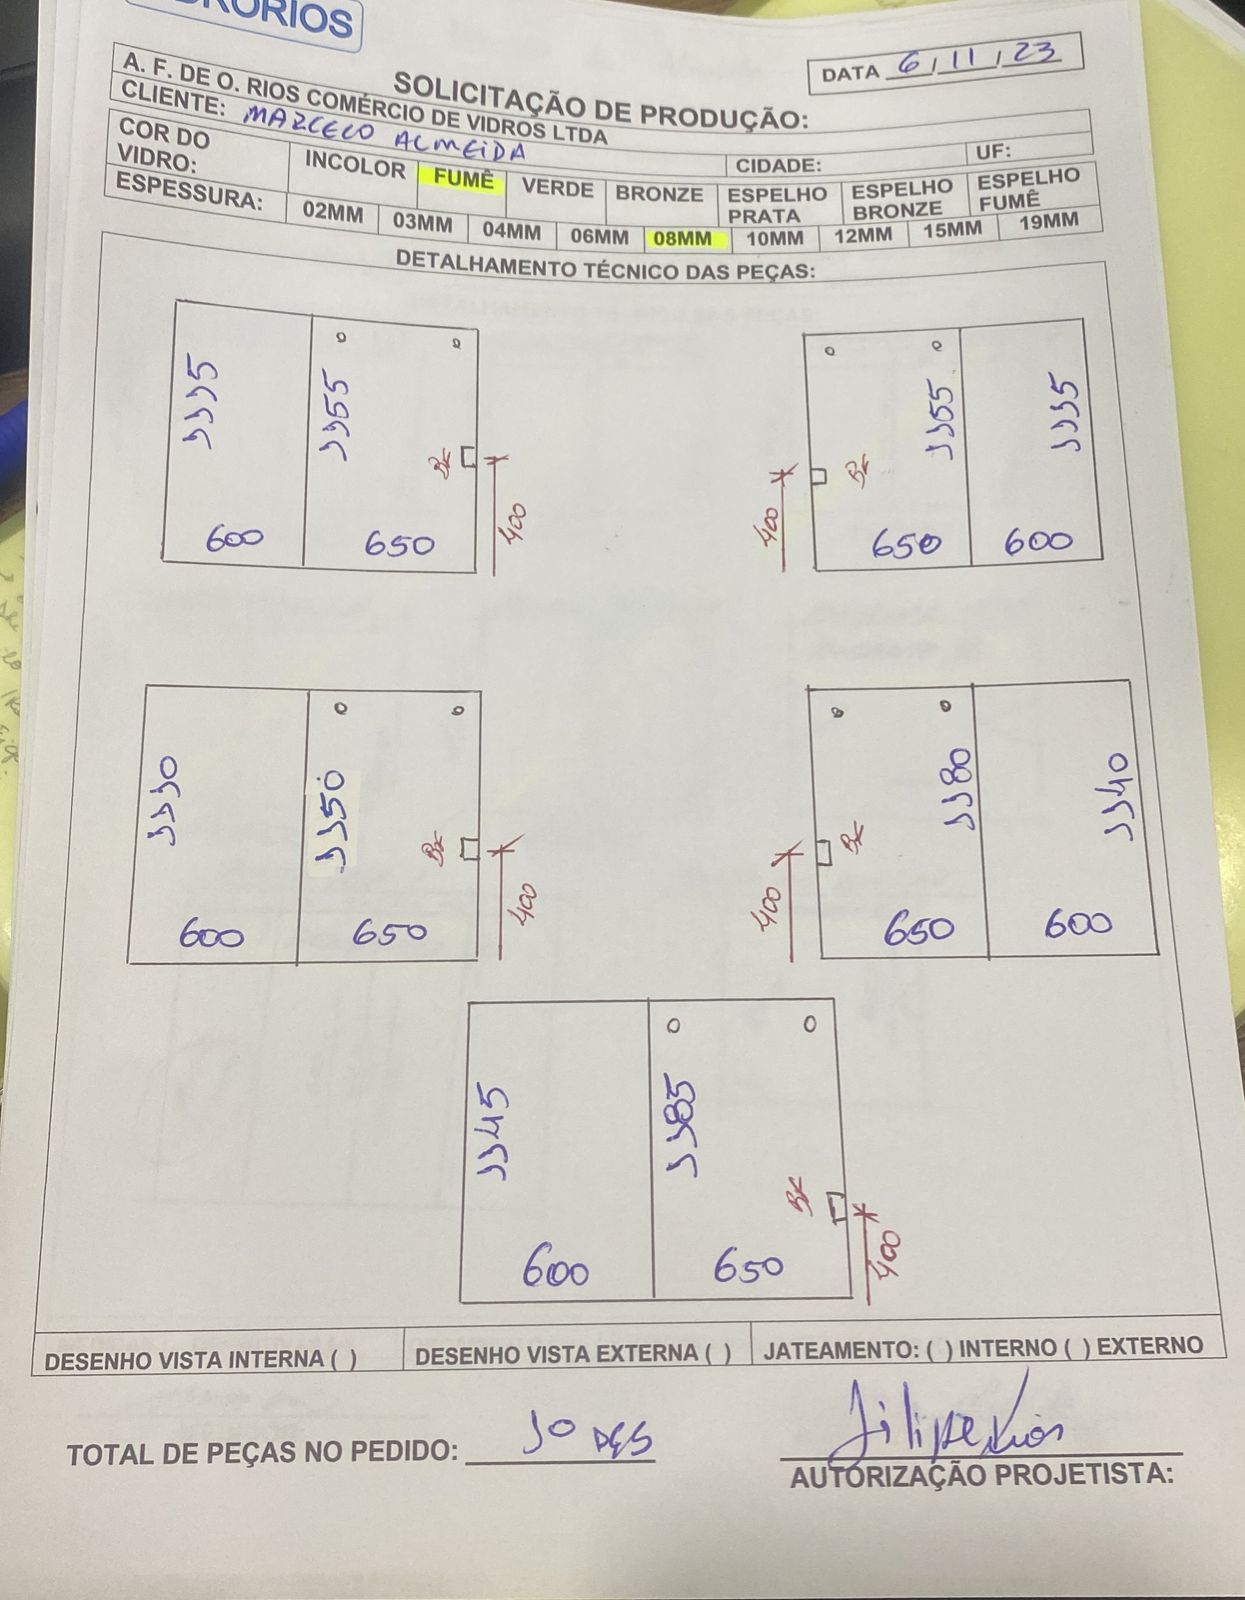 DRORIOS
DATA 6/11/23
SOLICITAÇÃO DE PRODUÇÃO:
A. F. DE O. RIOS COMÉRCIO DE VIDROS LTDA
CLIENTE: MARCELO ALMEIDA
CIDADE: UF:
COR DO VIDRO: INCOLOR FUMÊ VERDE BRONZE ESPELHO PRATA ESPELHO BRONZE ESPELHO FUMÊ
ESPESSURA: 02MM 03MM 04MM 06MM 08MM 10MM 12MM 15MM 19MM
DETALHAMENTO TÉCNICO DAS PEÇAS:
1115 1155
400
600 650
1155 1115
400
650 600
1110 1150
400
600 650
1180 1140
400
650 600
1145 1185
400
600 650
DESENHO VISTA INTERNA ( ) DESENHO VISTA EXTERNA ( ) JATEAMENTO: ( ) INTERNO ( ) EXTERNO
TOTAL DE PEÇAS NO PEDIDO: 10 PÇS
Filipe Rios
AUTORIZAÇÃO PROJETISTA: